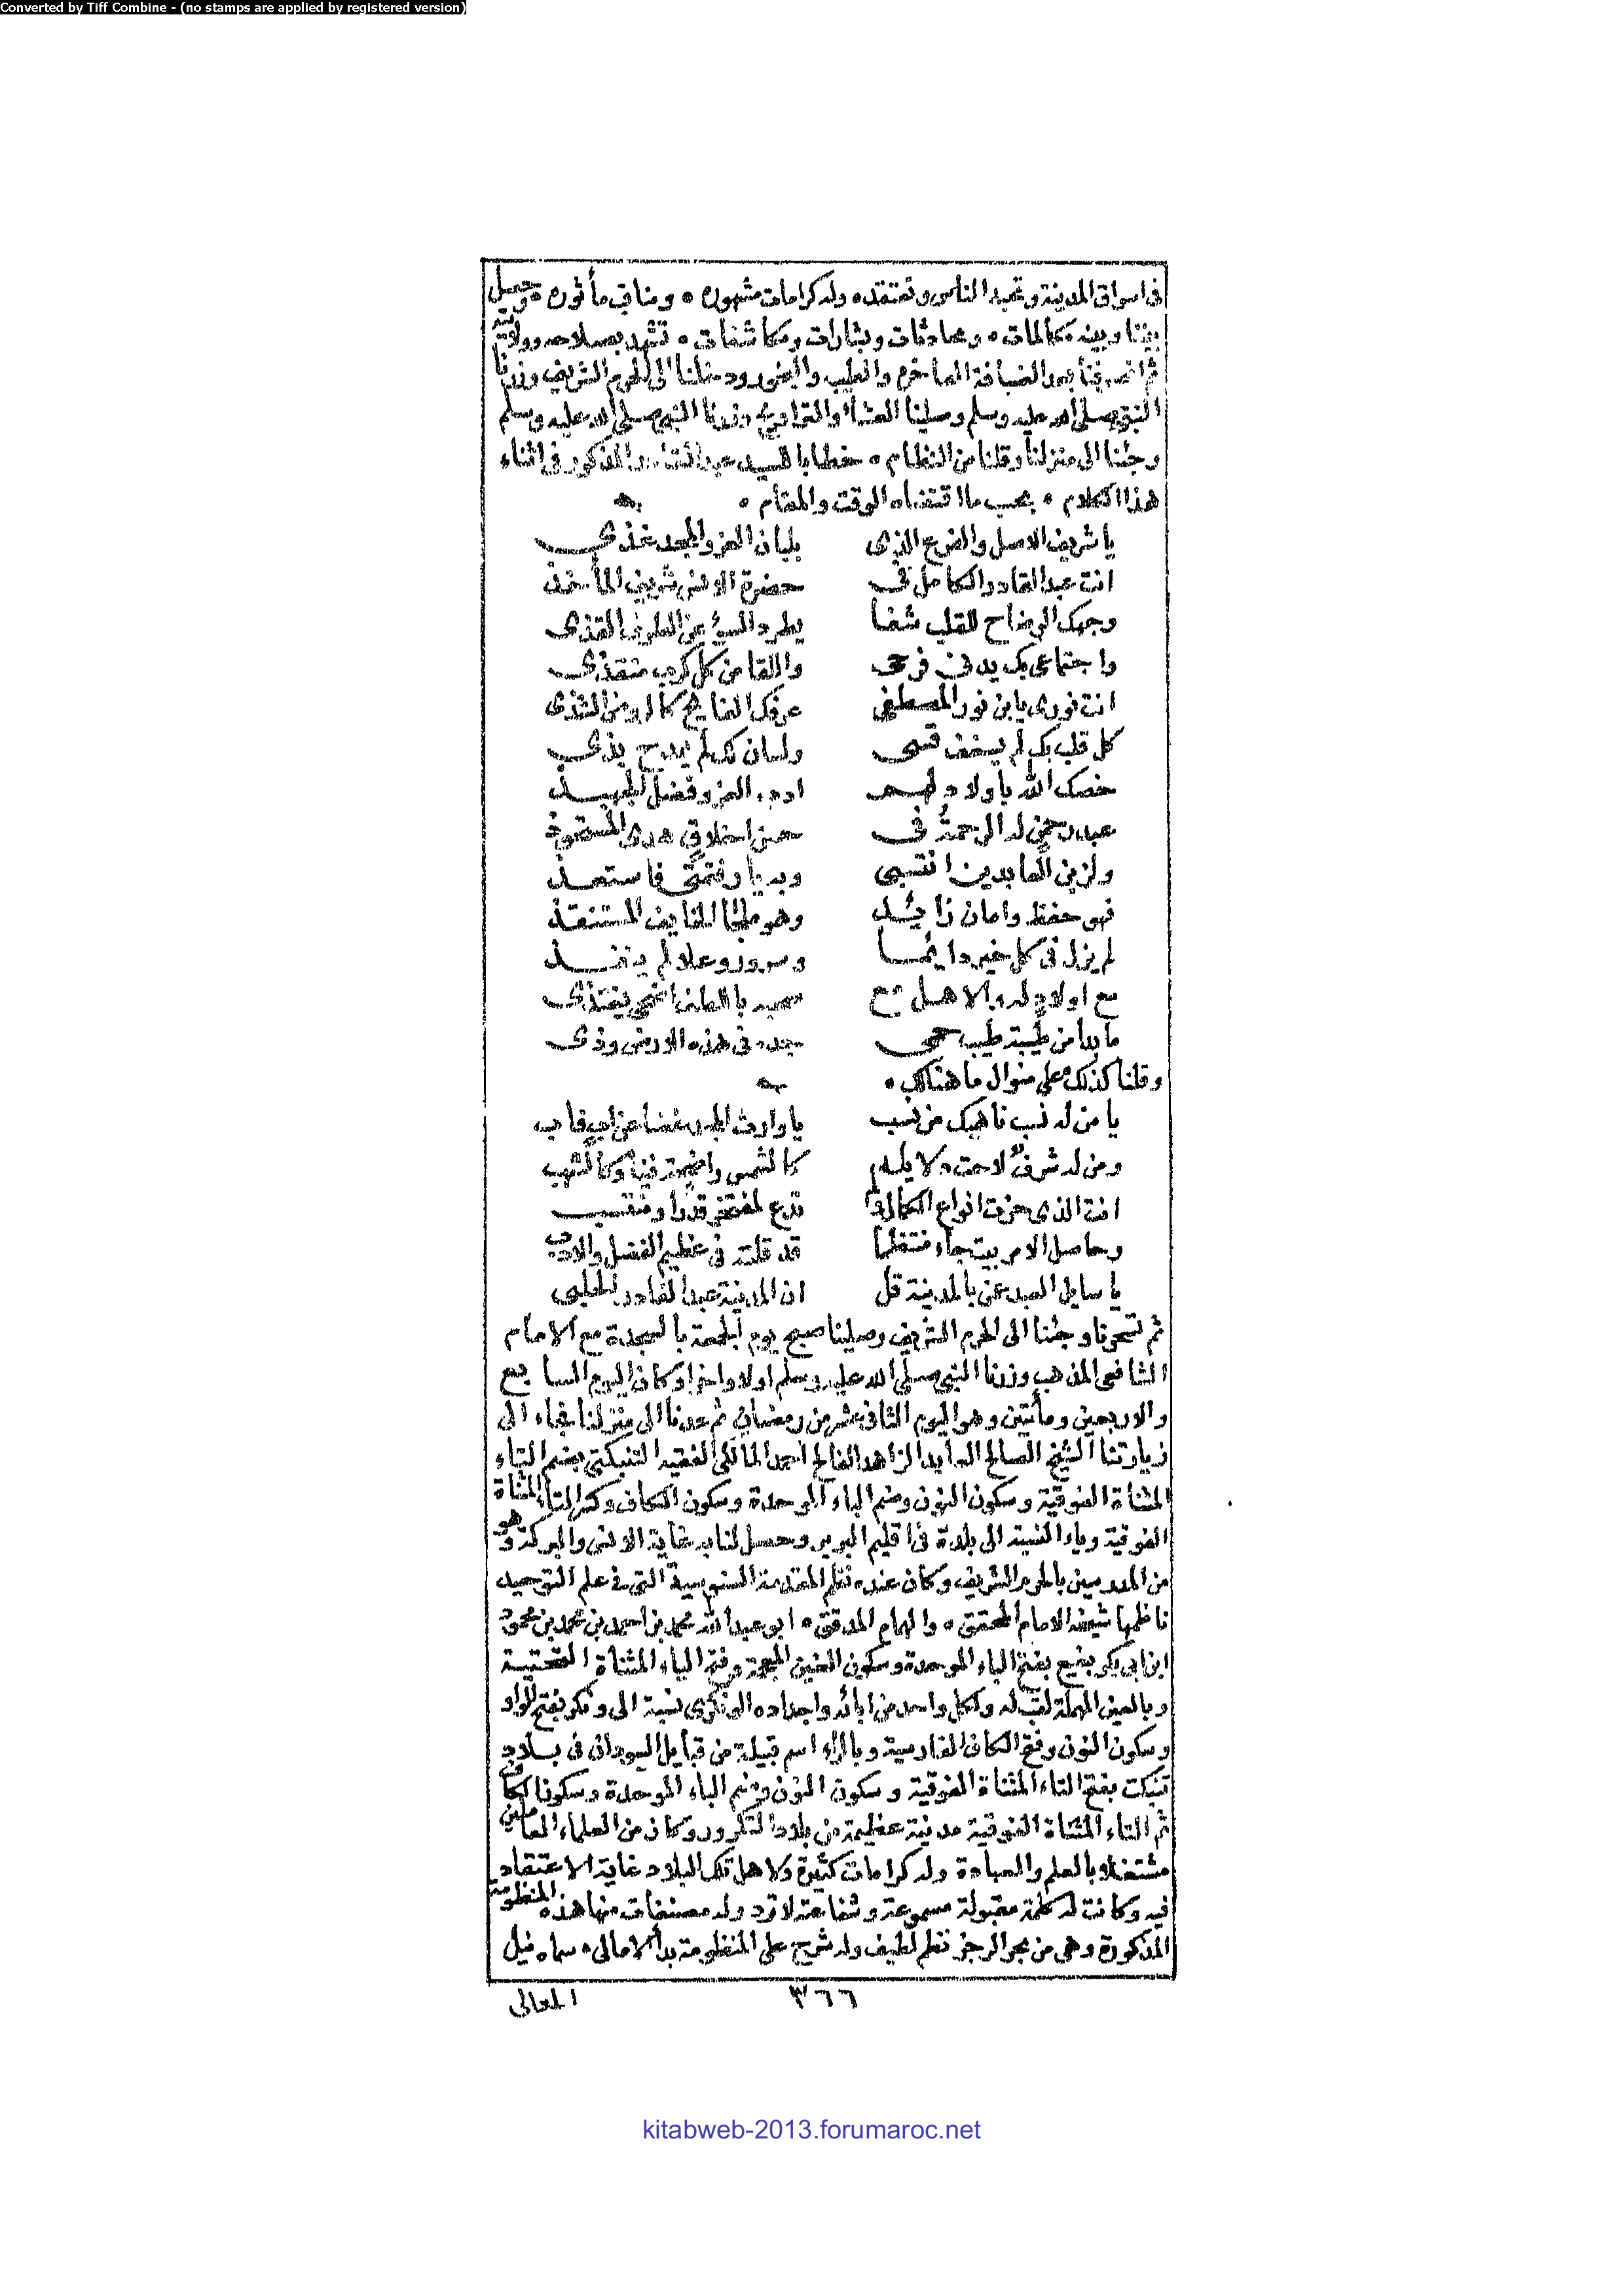 Converted by Tiff Combine - (no stamps are applied by registered version)
فى اسواق المدينة وتحبه الناس وتعتقده وله كرامات مشهوره ومناقب مأثوره وحصل
بيننا وبينه مكالمات ومحادثات وبشارات ومكاشفات تشهد بصلاحه وولايته
ثم انصرفنا بعد الضيافة الفاخره والطيب والبخور ودخلنا الى الحرم الشريف وزرنا
النبى صلى الله عليه وسلم وصلينا العشاء والتراويح وزرنا النبى صلى الله عليه وسلم
وجئنا الى منزلنا وقلنا من النظام خطابا للسيد عبد القادر المذكور فى اثناء
هذا الكلام بحسب ما اقتضاه الوقت والمقام
يا شريف الاصل والفرع الذى بلبان العز والمجد غذى
انت عبد القادر الكامل فى حضرة الانس شريف المأخذ
وجهك الوضاح للقلب شفا يطرد السوء عن الطرف القذى
واجتماعى بك يدنى فرحى واللقا من كل كرب منقذى
انت نورى يا ابن نور المصطفى عرفك الفايح كالروض الشذى
كل قلب بك لم يشغف قسى ولسان لك لم يمدح بذى
خصك الله باولاد لهم ادب العز وفضل الجهبذ
عبد رحمن له الرحمة فى حسن اخلاق هدى المستحوذ
ولزين العابدين انتسبى وبه يا رفعتى فاستعذ
فهو حفظ وامان زائد وهو ملجا الخايف المستنقذ
لم يزل فى كل خير دايما وسرور وعلا لم ينفذ
مع اولاد له والاهل مع صحبه باللطف اضحى يغتذى
ما بدا من طيبة طيب حمى جده فى هذه الارض وذى
وقلنا كذلك على منوال ما هنالك
يا من له نسب ناهيك من نسب يا وارث المجد غضا عن اب فاب
ومن له شرف لاحت دلايله كالشمس واضحة فينا وكالشهب
انت الذى حزت انواع الكمال فلم تدع لمفتخر قدرا ومنقب
وحاصل الامر بيت جاء منتظما قد قلته فى عظيم الفضل والادب
يا سايل العبد عمن بالمدينة قل ان المدينة عبد القادر الحلبى
ثم تسحرنا وجئنا الى الحرم الشريف وصلينا صبح يوم الجمعة بالسجدة مع الامام
الشافعى المذهب وزرنا النبى صلى الله عليه وسلم اولا واخرا وكان اليوم السابع
والاربعين ومأتين وهو اليوم الثانى عشر من رمضان ثم عدنا الى منزلنا فجاء الى
زيارتنا الشيخ الصالح العابد الزاهد الفالح احمد المالكى الفقيه التنبكتى بضم التاء
المثناة الفوقية وسكون النون وضم الباء الموحدة وسكون الكاف وكسر التاء المثناة
الفوقية وياء النسبة الى بلدة فى اقليم البربر وحصل لنا به غاية الانس والبركة وهو
من المدرسين بالحرم الشريف وكان عنده نظم المقدمة السنوسية التى فى علم التوحيد
ناظمها شيخه الامام المحقق والهمام المدقق ابو عبد الله محمد بن احمد بن محمد بن محمود
ابن ابى بكر بغيع بفتح الباء الموحدة وسكون الغين المعجمة وفتح الياء المثناة التحتية
وبالعين المهملة لقب له ولكل واحد من ابائه واجداده الونكرى نسبة الى ونكر بفتح الواو
وسكون النون وفتح الكاف الفارسية وبالراء اسم قبيلة من قبايل السودان فى بلاد
تنبكت بفتح التاء المثناة الفوقية وسكون النون وضم الباء الموحدة وسكون الكاف
ثم التاء المثناة الفوقية مدينة عظيمة من بلاد التكرور وكان من العلماء العاملين
مشتغلا بالعلم والعبادة وله كرامات كثيرة ولاهل تلك البلاد غاية الاعتقاد
فيه وكانت له كلمة مقبولة مسموعة وشفاعته لا ترد وله مصنفات منها هذه المنظومة
المذكورة وهى من بحر الرجز نظم لطيف وله شرح على المنظومة بدأ الامالى سماه نيل
٣٦٦
المعالى
kitabweb-2013.forumaroc.net